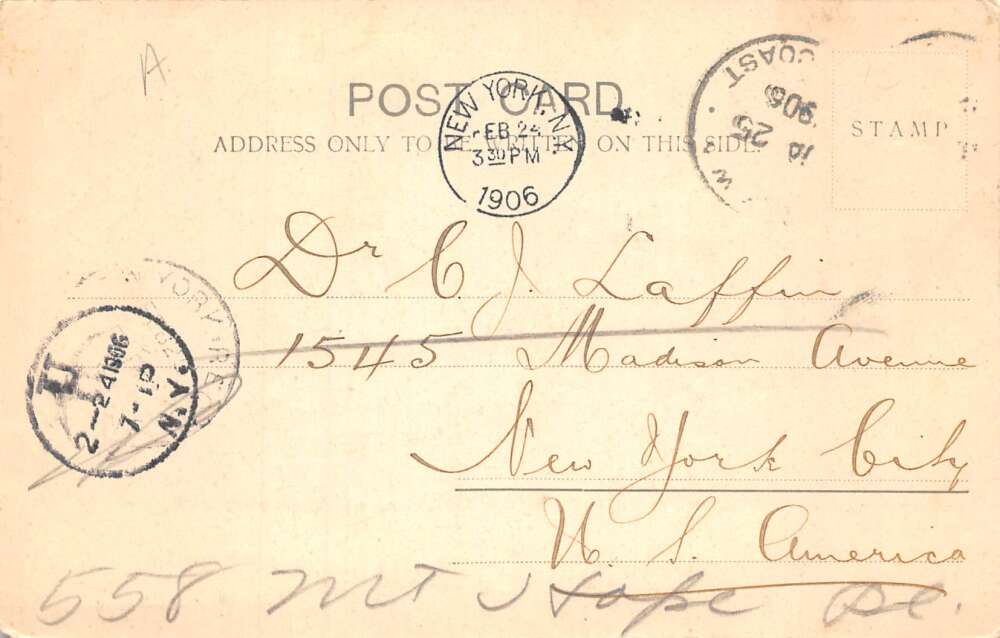 A.
POST CARD
ADDRESS ONLY TO BE WRITTEN ON THIS SIDE.
STAMP
NEW YORK, N.Y.
FEB 24
3 30 PM
1906
COAST
25
906
W
Dr C. J. Laffin
1545 Madison Avenue
New York City
U. S. America
NEW YORK
U
2-24 1906
7-1P
N.Y.
558 Mt Hope Pl.